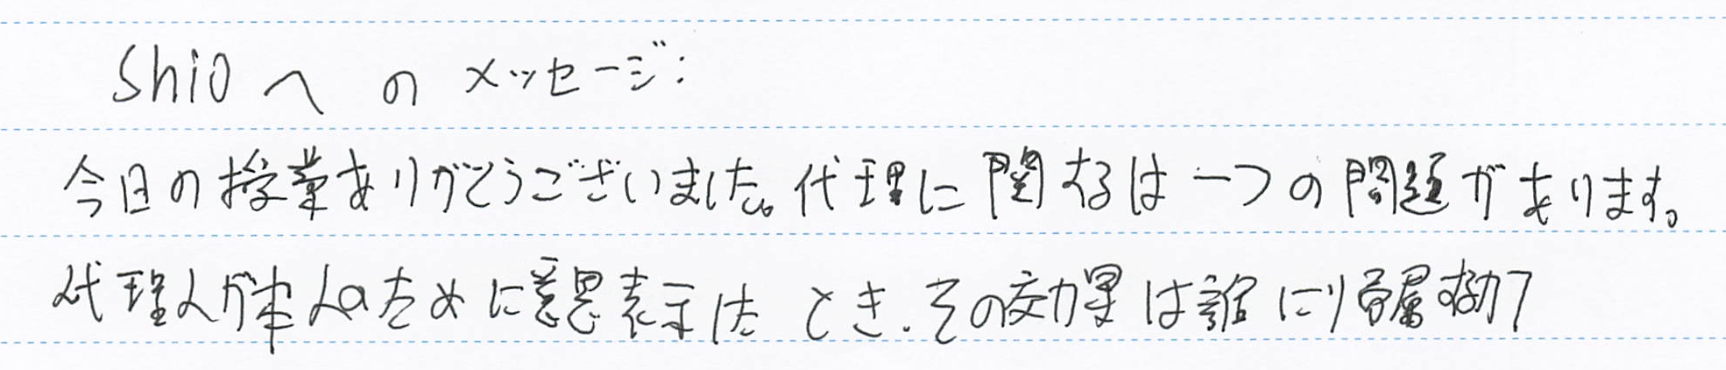 Shioへのメッセージ:
今日の授業ありがとうございました。代理に関するは一つの問題があります。
代理人が本人のために意思表示した とき、その効果は誰に帰属するか?